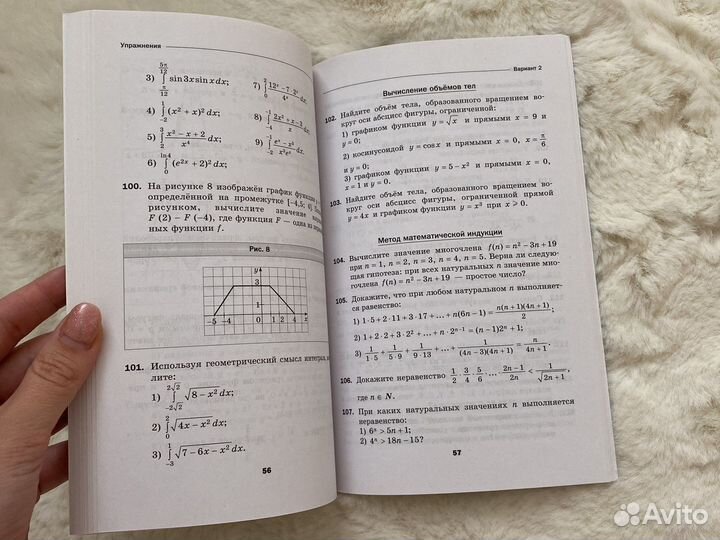 Упражнения
3) ∫_{π/12}^{5π/12} sin3x sinx dx;
4) ∫_{-2}^{1} (x² + x)² dx;
5) ∫_{2}^{3} (x² − x + 2)/x⁴ dx;
6) ∫_{0}^{ln4} (e^{2x} + 2)² dx;
7) ∫_{0}^{2} (12ˣ − 7 · 2ˣ)/4ˣ dx;
8) ∫_{-4}^{-1} (2x² + x − 3)/x dx;
9) ∫_{-2}^{-1} dx.
100. На рисунке 8 изображён график функции
определённой на промежутке [−4,5;
рисунком, вычислите значение
F (2) − F (−4), где функция F — одна из
ных функции f.
Рис. 8
y
3
1
−5 −4 0 1 4 x
101. Используя геометрический смысл
лите:
1) ∫_{-2√2}^{2√2} √(8 − x²) dx;
2) ∫_{0}^{2} √(4x − x²) dx;
3) ∫_{-3}^{1} √(7 − 6x − x²) dx.
56
Вариант 2
Вычисление объёмов тел
102. Найдите объём тела, образованного вращением во-
круг оси абсцисс фигуры, ограниченной:
1) графиком функции y = √x и прямыми x = 9 и
y = 0;
2) косинусоидой y = cosx и прямыми x = 0, x = π/6
и y = 0;
3) графиком функции y = 5 − x² и прямыми x = 0,
x = 1 и y = 0.
103. Найдите объём тела, образованного вращением во-
круг оси абсцисс фигуры, ограниченной прямой
y = 4x и графиком функции y = x³ при x ⩾ 0.
Метод математической индукции
104. Вычислите значение многочлена f(n) = n² − 3n + 19
при n = 1, n = 2, n = 3, n = 4, n = 5. Верна ли следую-
щая гипотеза: при всех натуральных n значение мно-
гочлена f(n) = n² − 3n + 19 — простое число?
105. Докажите, что при любом натуральном n выполняет-
ся равенство:
1) 1·5 + 2·11 + 3·17 + ... + n(6n − 1) = n(n + 1)(4n + 1)/2;
2) 1 + 2·2 + 3·2² + ... + n·2ⁿ⁻¹ = (n − 1)2ⁿ + 1;
3) 1/(1·5) + 1/(5·9) + 1/(9·13) + ... + 1/((4n − 3)(4n + 1)) = n/(4n + 1).
106. Докажите неравенство 1/2 · 3/4 · 5/6 · ... · (2n − 1)/2n < 1/√(2n + 1),
где n ∈ N.
107. При каких натуральных значениях n выполняется
неравенство:
1) 6ⁿ > 5n + 1;
2) 4ⁿ > 18n − 15?
57
Avito